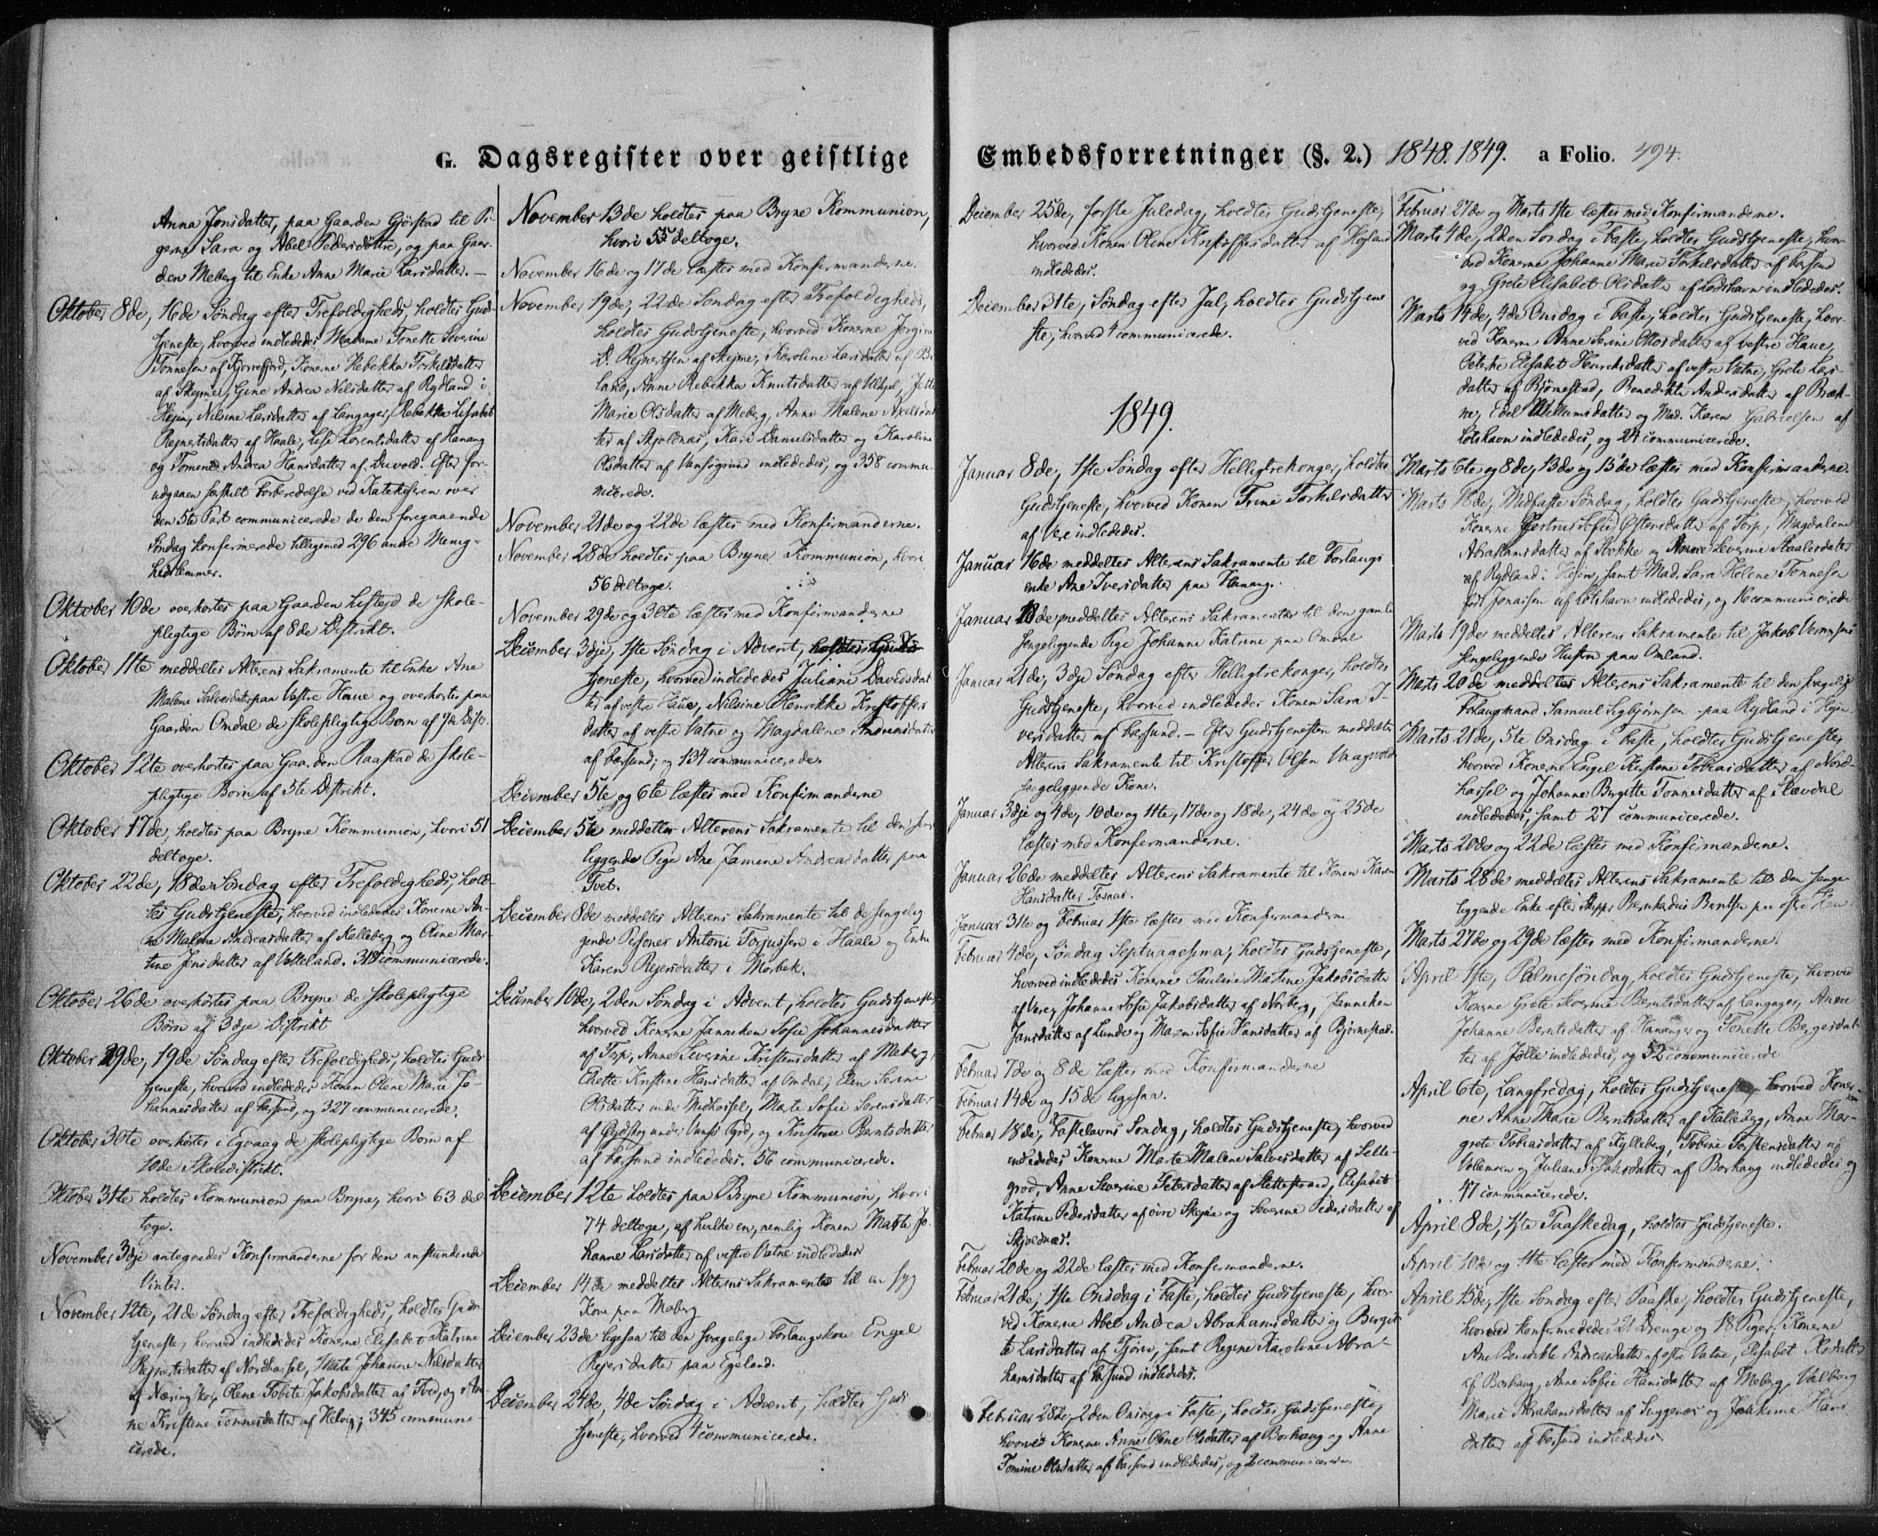 G. Dagsregister over geistlige
Anna Jonsdatter, paa Gaarden Gjørstad til Pi-
gerne Sara og Abel Pedersdøttre, og paa Gaar-
den Meberg til Enke Anne Marie Larsdatter. —
Oktober 8de, 16de Søndag efter Trefoldigheds, holdtes Gud-
tjeneste, hvorved indlededes Madame Tonette Severine
Tønnesen af Kjørrefjord, Konerne Rebekka Torkelsdatter
af Skejme, Gine Andrea Nilsdatter af Rydland i
Hejm, Nilsine Larsdatter af Langager, Rebekka Elisabet
Rejnertsdatter af Haale, Lise Lorentsdatter af Hanang
og Tomine Andrea Hansdatter af Duvold. Efter for-
udgaaen særskilt Forberedelse ved Katekiseren over
den 5te Part communicerede de den foregaaende
Søndag konfirmerede tilligemed 296 andre Menig-
hedslemmer.
Oktober 10de overhørtes paa Gaarden Listejd de skole-
pligtige Børn af 8de Distrikt.
Oktober 11te meddeltes Alterens Sakramente til Enke Ane
Malene Salvesdatter paa Vestre Haue og overhørtes paa
Gaarden Omdal de skolepligtige Børn af 7de Distr.
Oktober 12te overhørtes paa Gaarden Raastad de skole-
pligtige Børn af 5te Distrikt.
Oktober 17de, holdtes paa Bryne Kommunion, hvori 51
deltoge.
Oktober 22de, 18de Søndag efter Trefoldigheds, hold-
tes Gudstjeneste, hvorved indlededes Konerne An-
ne Malene Andreasdatter af Kalleberg og Oline Mar-
tine Jensdatter af Vatteland. 318 communicerede.
Oktober 26de overhørtes paa Bryne de skolepligtige
Børn af 3dje Distrikt
Oktober 29de, 19de Søndag efter Trefoldigheds, holdtes Guds-
tjeneste, hvorved indlededes Konen Olene Marie Jo-
hannesdatter af Farsund, og 327 communicerede.
Oktober 30te overhørtes i Egvaag de skolepligtige Børn af
10de Skoledistrikt.
Oktober 31te holdtes Kommunion paa Bryne, hvori 63 del-
toge.
November 3dje antegnedes Konfirmanderne for den anstundende
Vinter.
November 12te, 21de Søndag efter Trefoldigheds, holdtes Guds-
tjeneste, hvorved indlededes Konerne Elisabet Katrine
Rejnertsdatter af Nordhassel, Mate Johanne Nilsdatter
af Næring, Olene Tobite Jakobsdatter af Tved, og An-
ne Kristine Tønnesdatter af Helvig; 345 commune
cerede.
November 13de holdtes paa Bryne Kommunion,
hvori 55 deltoge.
November 16de og 17de læstes med Konfirmanderne.
November 19de, 22de Søndag efter Trefoldigheds,
holdtes Gudstjeneste, hvorved Konerne Jørgine
D. Rejnertsen af Skejme, Karoline Larsdatter af Be-
land, Anne Rebekka Knutsdatter af Ulthjel, Jette
Marie Olsdatter af Meberg, Anne Malene Axelsdat-
ter af Skjolnæs, Kari Danielsdatter og Karoline
Olsdatter af Vansøgrund indlededes, og 358 commu-
nicerede.
November 21de og 22de læstes med Konfirmanderne.
November 28de holdtes paa Bryne Kommunion, hvori
56 deltoge.
November 29de og 30te læstes med Konfirmanderne
December 3dje, 1ste Søndag i Advent, holdtes Guds-
tjeneste, hvorved indlededes Juliane Davidsdat-
ter af vestre Haue, Nilsine Henrikke Kristoffers-
datter af vestre Vatne og Magdalene Andreasdatter
af Farsund; og 134 communicerede.
December 5te og 6te læstes med Konfirmanderne
December 5te meddeltes Alterens Sakramente til den senge-
liggende Pige Ane Jamine Andreasdatter paa
Tvet.
December 8de meddeltes Alterens Sakramente til de sengelig-
gende Personer Antoni Torjussen i Haale og Enke
Karen Rejersdatter i Mørbek.
December 10de, 2den Søndag i Advent, holdtes Gudstjeneste,
hvorved Konerne Janneken Sofie Johannesdatter
af Torp, Anne Severine Kristensdatter af Meberg,
Enette Kristine Hansdatter af Omdal, Elen Serine
Olsdatter under Midhassel, Marte Sofie Sørensdatter
af Grydstøg under Vansø Pgrd, og Kristence Berntsdatter
af Farsund indlededes. 56 communicerede.
December 12te holdtes paa Bryne Kommunion, hvori
74 deltoge, af hvilke en, nemlig Konen Marte Jo-
hanne Larsdatter af vestre Vatne indlededes
December 14de meddeltes Alterens Sakramente til en syg
Kone paa Moberg
December 23de ligesaa til den svagelige Forlangskone Engel
Rejersdatter paa Egeland.
December 24de, 4de Søndag i Advent, holdtes Guds
tjeneste, hvorved 4 communicerede.
Embedsforretninger (§. 2.) 1848. 1849. a Folio. 494.
December 25de, første Juledag, holdtes Gudstjeneste,
hvorved Konen Oline Kristoffersdatter af Højland
indlededes.
December 31te, Søndag efter Jul, holdtes Gudstjene
ste, hvorved 4 communicerede.
1849.
Januar 8de, 1ste Søndag efter Helligtrekonger, holdtes
Gudstjeneste, hvorved Konen Trine Torkelsdatter
af Vere indlededes.
Januar 16de meddeltes Alterens Sakramente til Forlangs
enke Ane Iversdatter paa Hanang.
Januar 18de meddeltes Alterens Sakramente til den gamle
sengeliggende Pige Johanne Katrine paa Omdal
Januar 21de, 3dje Søndag efter Helligtrekonger, holdtes
Gudstjeneste, hvorved indlededes Konen Sara I-
versdatter af Farsund. — Efter Gudstjenesten meddeltes
Alterens Sakramente til Kristoffer Olsen Vaagsvold
sengeliggende Kone.
Januar 3dje og 4de, 10de og 11te, 17de og 18de, 24de og 25de
læstes med Konfirmanderne.
Januar 26de meddeltes Alterens Sakramente til Konen Karen
Hansdatter Fosnæs.
Januar 31te og Februar 1ste læstes med Konfirmanderne
Februar 4de, Søndag Septuagesima, holdtes Gudstjeneste,
hvorved indlededes Konerne Pauline Matine Jakobsdatter
af Vere, Johanne Sofie Jakobsdatter af Norberg, Janneken
Jansdatter af Lunde og Maren Sofie Hansdatter af Bjørnestad.
Februar 7de og 8de læstes med Konfirmanderne
Februar 14de og 15de ligesaa.
Februar 18de, Fastelavns Søndag, holdtes Gudstjeneste, hvorved
indlededes Konerne Marte Malene Salvesdatter af Selle-
grod, Anne Severine Petersdatter af Slettestrand, Elisabet
Katrine Pedersdatter af øvre Skejme og Severine Pedersdatter af
Skjolnæs.
Februar 20de og 22de læstes med Konfirmanderne.
Februar 21de, 1ste Onsdag i Faste, holdtes Gudstjeneste, hvor-
ved Konerne Abel Andrea Abrahamsdatter og Berget
te Larsdatter af Tjørve, samt Regine Karoline Abra-
hamsdatter af Farsund indlededes.
Februar 28de, 2den Onsdag i Faste, holdtes Gudstjeneste,
hvorved Konerne Anne Olene Olsdatter af Borhaug og Anne
Tomine Olsdatter af Farsund indlededes, og 2 communicerede
Februar 27de og Marts 1ste læstes med Konfirmanderne.
Marts 4de, 2den Søndag i Faste, holdtes Gudstjeneste, hvor-
ved Konerne Johanne Marie Torkelsdatter af Farsund
og Grete Elisabet Olsdatter af Loshavn indlededes.
Marts 14de, 4de Onsdag i Faste, holdtes Gudstjeneste, hvor-
ved Konerne Anne Serine Ottosdatter af vestre Haue,
Peternke Elisabet Henriksdatter af vestre Vatne, Grete Lars-
datter af Bjørnestad, Benedikte Andersdatter af Bræk-
ne, Edel Willumsdatter og Mad. Karen Gabrielsen af
Loshavn indlededes, og 24 communicerede.
Marts 6te og 8de, 13de og 15de læstes med Konfirmanderne.
Marts 18de, Midfaste Søndag, holdtes Gudstjeneste, hvorved
Konerne Jertrud Sofie Eftensdatter af Torp, Magdalene
Abrahamsdatter af Bække og Anne Severine Staalesdatter
af Rydland i Hejm, samt Mad. Sara Helene Tønnesen
født Jonassen af Loshavn indlededes, og 16 communicerede
Marts 19de meddeltes Alterens Sakramente til Jakob Vermunds
sengeliggende Hustru paa Omland.
Marts 20de meddeltes Alterens Sakramente til den svagelige
Forlangsmand Samuel Sigbjørnsen paa Rydland i Hejm.
Marts 21de, 5te Onsdag i Faste, holdtes Gudstjeneste,
hvorved Konerne Engel Kirstine Tobiasdatter af Nord-
hassel og Johanne Birgitte Tønnesdatter af Slævdal
indlededes, samt 27 communicerede.
Marts 20de og 22de læstes med Konfirmanderne.
Marts 28de meddeltes Alterens Sakramente til den senge-
liggende Enke efter Skipper Berntsen paa østre Haue
Marts 27de og 29de læstes med Konfirmanderne.
April 1ste, Palmesøndag, holdtes Gudstjeneste, hvorved
Konerne Grete Severine Berntsdatter af Langager, Anne
Johanne Berntsdatter af Hananger og Tonette Bergesdat-
ter af Jølle indlededes, og 52 communicerede
April 6te, Langfredag, holdtes Gudstjeneste, hvorved Koner-
ne Anne Marie Berntsdatter af Kalleberg, Anne Mar-
grete Tobiasdatter af Kylleberg, Tobine Torstensdatter af
Volensen og Juliane Isaksdatter af Borhaug indlededes og
47 communicerede.
April 8de, 1ste Paaskedag, holdtes Gudstjeneste.
April 10de og 11te læstes med Konfirmanderne.
April 15de, 1ste Søndag efter Paaske, holdtes Gudstjeneste,
hvorved konfirmeredes 21 Drenge og 18 Piger; Konerne
Ane Benedikte Andreasdatter af østre Vatne, Elisabet Olsdatter
af Borhaug, Anne Sofie Hansdatter af Moberg, Valborg
Marie Abrahamsdatter af Snggenes og Joakime Hans
datter af Farsund indlededes